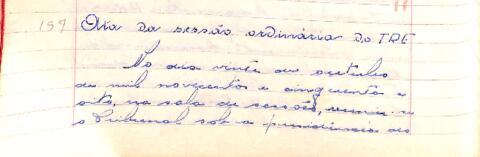 159 Ata da sessão ordinária do TRE
No dia vinte de outubro
de mil novecentos e cinquenta e
oito, na sala de sessões, reuniu-se
o Tribunal sob a presidência do